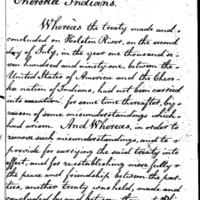 Cherokee Indians.
Whereas the treaty made and
concluded on Holston River, on the second
day of July, in the year one thousand se-
ven hundred and ninety one, between the
United States of America and the Chero-
kee nation of Indians, had not been carried
into execution for some time thereafter, by
reason of some misunderstandings which
had arisen. And Whereas, in order to
remove such misunderstandings, and to
provide for carrying the said treaty into
effect, and for re-establishing more fully
the peace and friendship between the par-
ties, another treaty was held, made and
concluded by and between